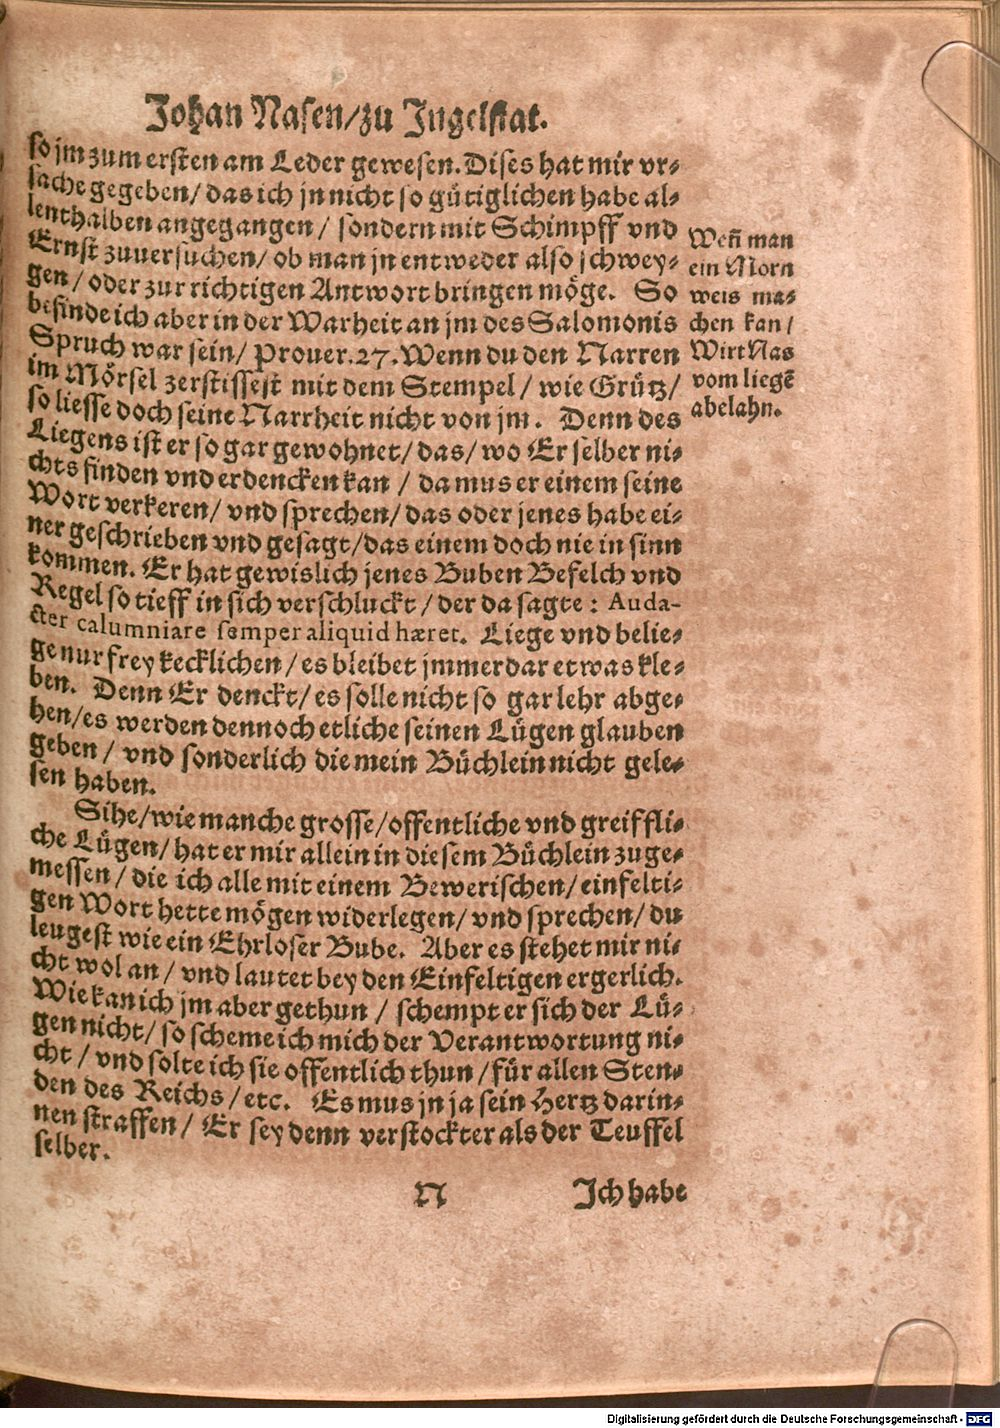 Johan Nasen/zu Ingelstat.
so jm zum ersten am Leder gewesen. Dises hat mir vr-
sache gegeben/ das ich jn nicht so gütiglichen habe al-
lenthalben angegangen/ sondern mit Schimpff vnd
Ernst zuuersuchen/ ob man jn entweder also schwey-
gen/ oder zur richtigen Antwort bringen möge. So
befinde ich aber in der Warheit an jm des Salomonis
Spruch war sein/ Prouer.27. Wenn du den Narren
im Mörsel zerstissest mit dem Stempel/ wie Grütz/
so liesse doch seine Narrheit nicht von jm. Denn des
Liegens ist er so gar gewohnet/ das/ wo Er selber ni-
chts finden vnd erdencken kan/ da mus er einem seine
Wort verkeren/ vnd sprechen/ das oder jenes habe ei-
ner geschrieben vnd gesagt/ das einem doch nie in sinn
kommen. Er hat gewislich jenes Buben Befelch vnd
Regel so tieff in sich verschluckt/ der da sagte: Auda-
cter calumniare semper aliquid hæret. Liege vnd belie-
ge nur frey kecklichen/ es bleibet jmmerdar etwas kle-
ben. Denn Er denckt/ es solle nicht so gar lehr abge-
hen/ es werden dennoch etliche seinen Lügen glauben
geben/ vnd sonderlich die mein Büchlein nicht gele-
sen haben.
Sihe/ wie manche grosse/ offentliche vnd greiffli-
che Lügen/ hat er mir allein in diesem Büchlein zuge-
messen/ die ich alle mit einem Bewerischen/ einfelti-
gen Wort hette mögen widerlegen/ vnd sprechen/ du
leugest wie ein Ehrloser Bube. Aber es stehet mir ni-
cht wol an/ vnd lautet bey den Einfeltigen ergerlich.
Wie kan ich jm aber gethun/ schempt er sich der Lü-
gen nicht/ so scheme ich mich der Verantwortung ni-
cht/ vnd solte ich sie offentlich thun/ für allen Sten-
den des Reichs/ etc. Es mus jn ja sein Hertz darin-
nen straffen/ Er sey denn verstockter als der Teuffel
selber.
N Ich habe
Weñ man
ein Morn
weis ma-
chen kan/
Wirt Nas
vom liegē
abelahn.
Digitalisierung gefördert durch die Deutsche Forschungsgemeinschaft - DFG